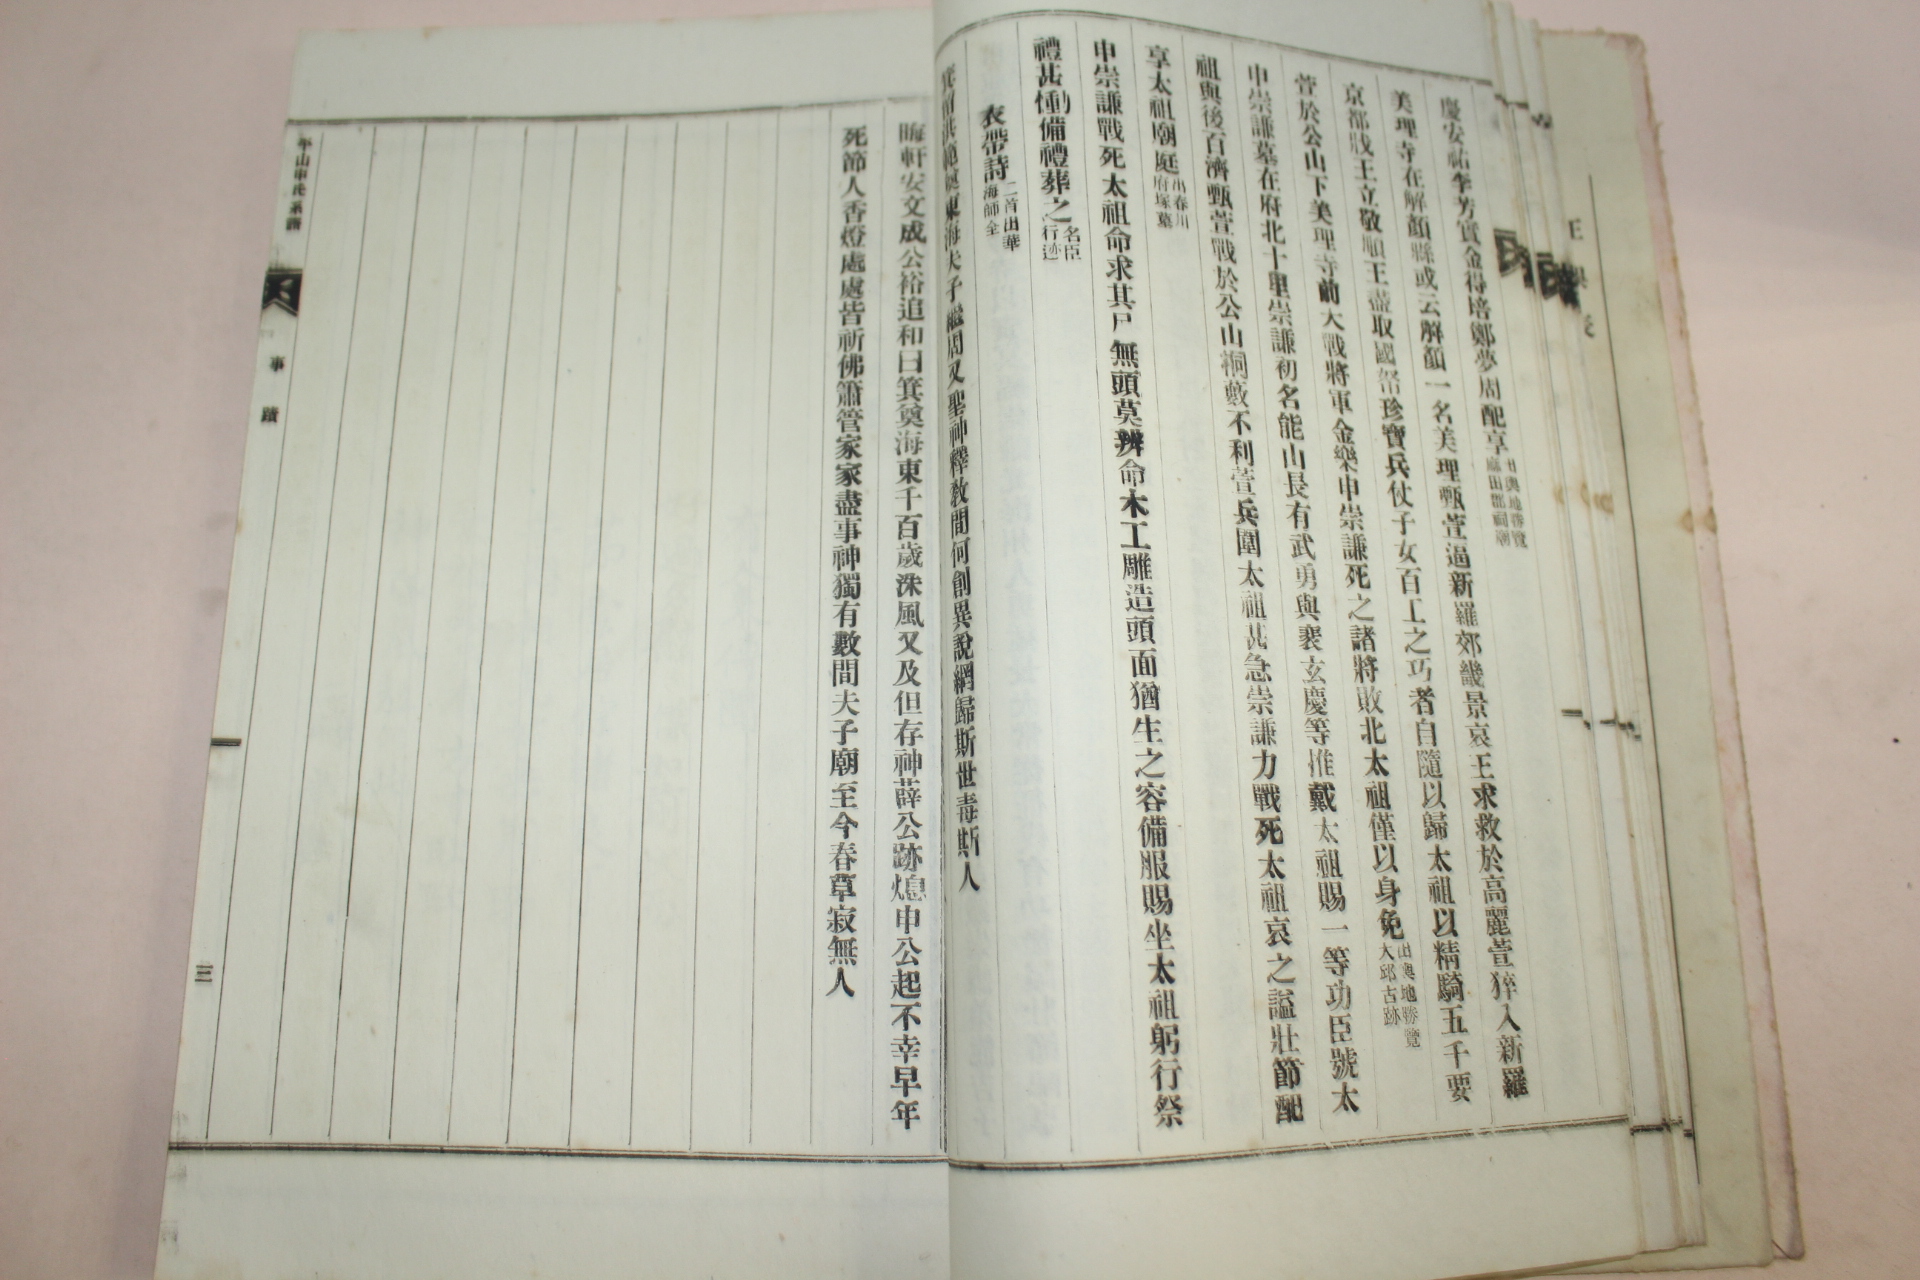 慶安祐李芳實金得培鄭夢周配享出輿地勝覽
麻田郡祠廟
美理寺在解顏縣或云解顏一名美理甄萱逼新羅郊畿景哀王求救於高麗萱猝入新羅
京都戕王立敬順王盡取國帑珍寶兵仗子女百工之巧者自隨以歸太祖以精騎五千要
萱於公山下美理寺前大戰將軍金樂申崇謙死之諸將敗北太祖僅以身免出輿地勝覽
大邱古跡
申崇謙墓在府北十里崇謙初名能山長有武勇與裵玄慶等推戴太祖賜一等功臣號太
祖與後百濟甄萱戰於公山桐藪不利萱兵圍太祖甚急崇謙力戰死太祖哀之謚壯節配
享太祖廟庭出春川
府塚墓
申崇謙戰死太祖命求其尸無頭莫辨命木工雕造頭面猶生之容備服賜坐太祖躬行祭
禮甚慟備禮葬之名臣
行迹
衣帶詩二首出華
海師全
東海夫子繼周又聖神釋敎間何創異說網歸斯世毒斯人
晦軒安文成公裕追和曰箕奠海東千百歲洙風又及但存神薛公跡熄申公起不幸早年
死節人香燈處處皆祈佛簫管家家盡事神獨有數間夫子廟至今春草寂無人
平山申氏系譜
事蹟
三